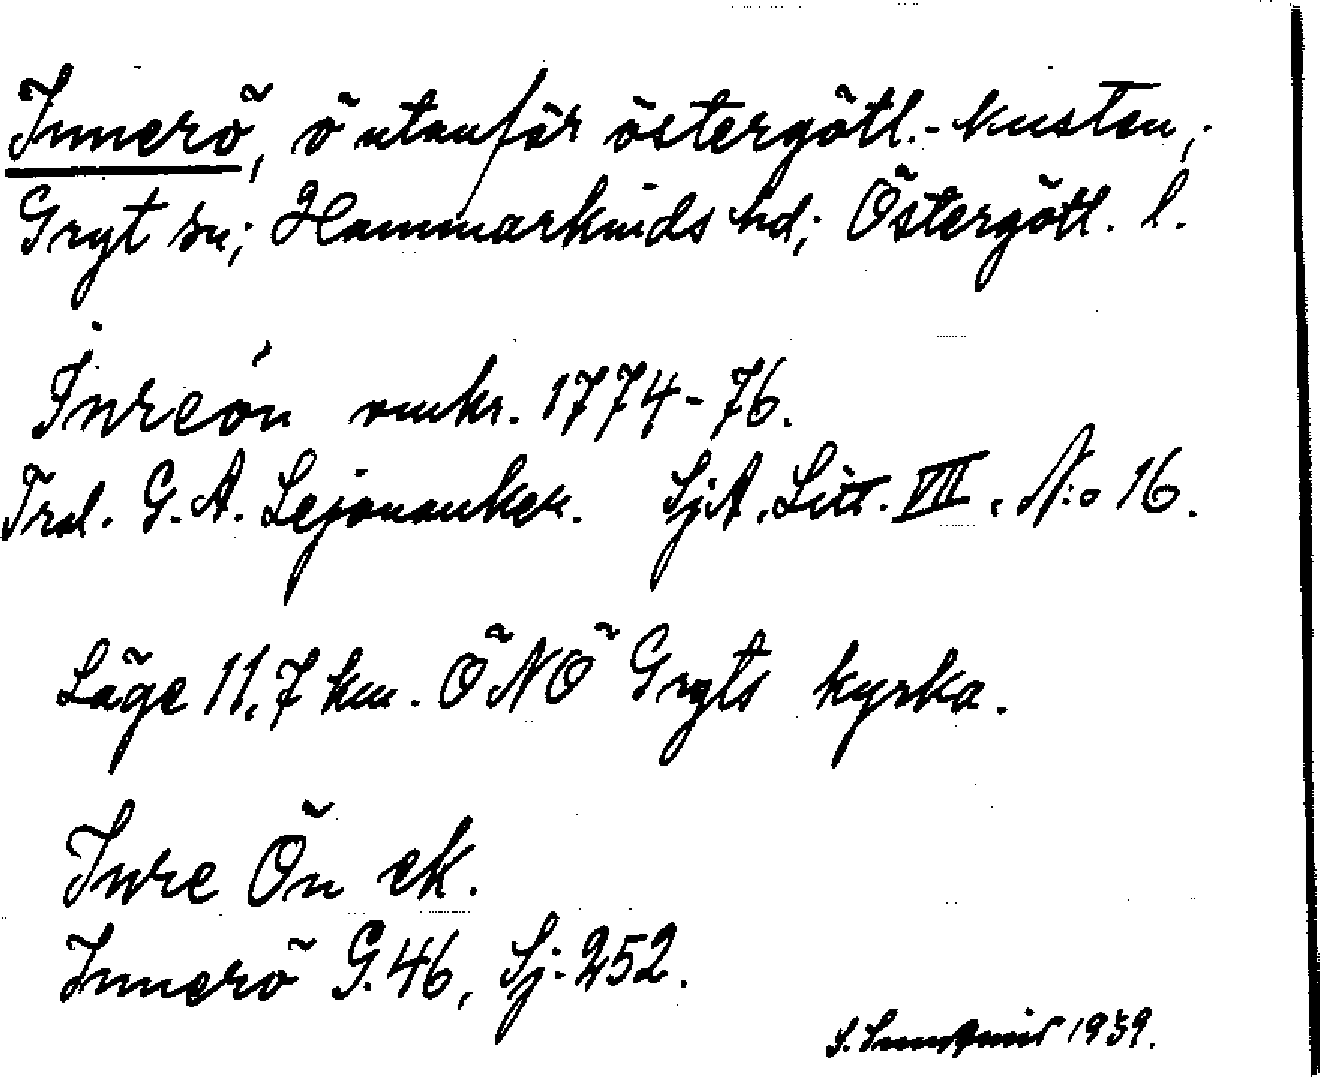 Innerö, ö utanför östergötl.-kusten,
Gryt sn; Hammarkinds hd; Östergötl. l.
Inreön omkr. 1774-76.
Trol. G. A. Lejonanker. SjA. Litt. VII. N:o 16.
Läge 11,7 km. ÖNÖ Gryts kyrka.
Inre Ön ek.
Innerö G. 46, Sj: 252.
S. 1939.